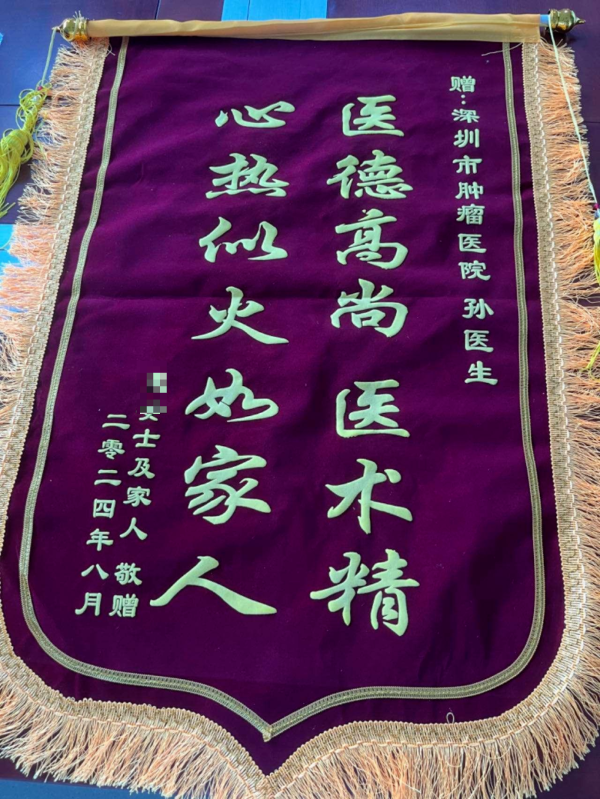 赠:深圳市肿瘤医院 孙医生
医德高尚 医术精
心热似火如家人
女士及家人 敬赠
二零二四年八月